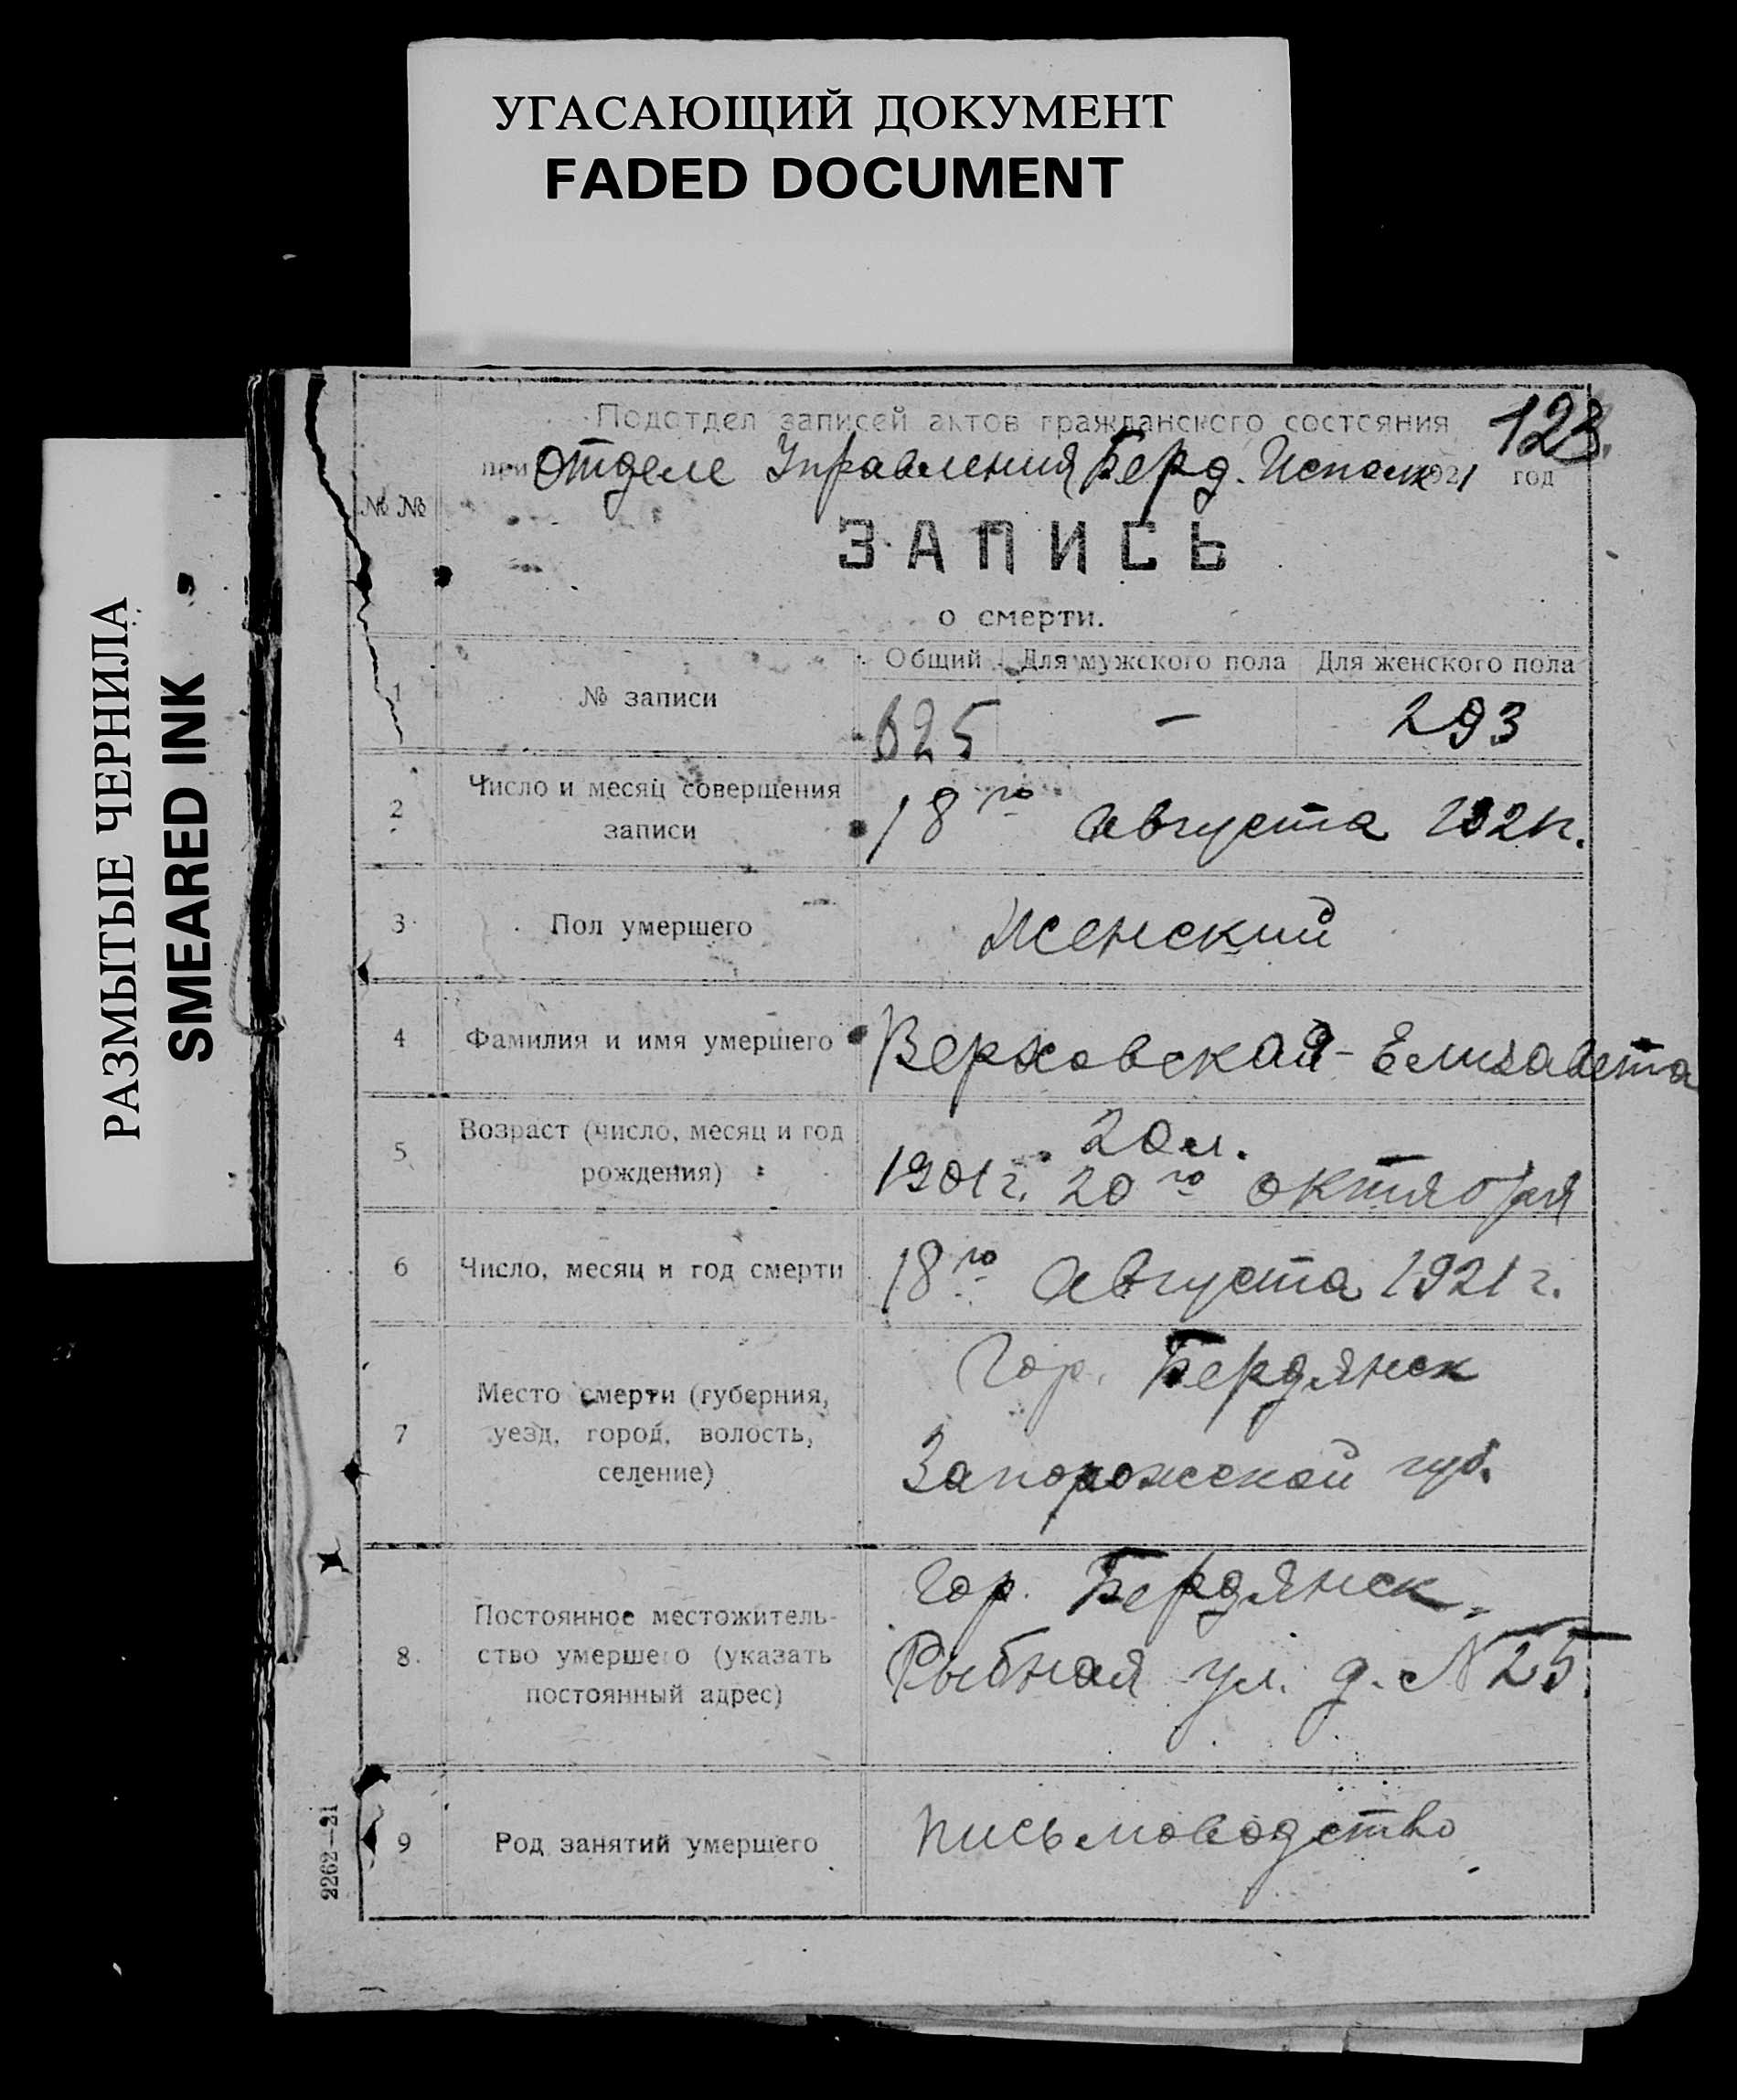 УГАСАЮЩИЙ ДОКУМЕНТ
FADED DOCUMENT
РАЗМЫТЫЕ ЧЕРНИЛА
SMEARED INK
Подотдел записей актов гражданского состояния
123.
при Отделе Управления Берд. Исполк 1921 год
№ №
ЗАПИСЬ
о смерти.
Общий Для мужского пола Для женского пола
1 № записи 625 — 293
2 Число и месяц совершения
записи
18го августа 1921г.
3 Пол умершего женский
4 Фамилия и имя умершего Верховская - Елизавета
5 Возраст (число, месяц и год
рождения)
20 л.
1901 г. 20го октября
6 Число, месяц и год смерти 18го августа 1921 г.
7 Место смерти (губерния,
уезд, город, волость,
селение)
Гор. Бердянск
Запорожской губ.
8 Постоянное местожитель-
ство умершего (указать
постоянный адрес)
Гор. Бердянск.
Рыбная ул. д. № 25.
9 Род занятий умершего письмоводство
2262—21